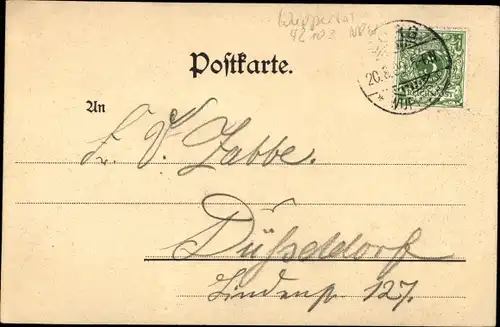 Wuppertal
42103 NRW
Postkarte.
An
F. V. Labbe.
Düsseldorf
Lindenstr 127.